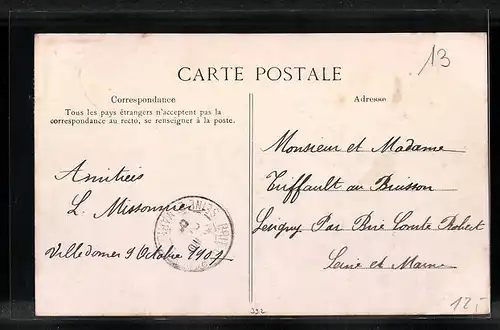 13
CARTE POSTALE
Correspondance
Tous les pays étrangers n'acceptent pas la
correspondance au recto, se renseigner à la poste.
Amitiés
L. Missonnier
Villedomer 9 Octobre
Adresse
Monsieur et Madame
Triffault au Buisson
Par Brie Comte Robert
Seine et Marne
392
12,-